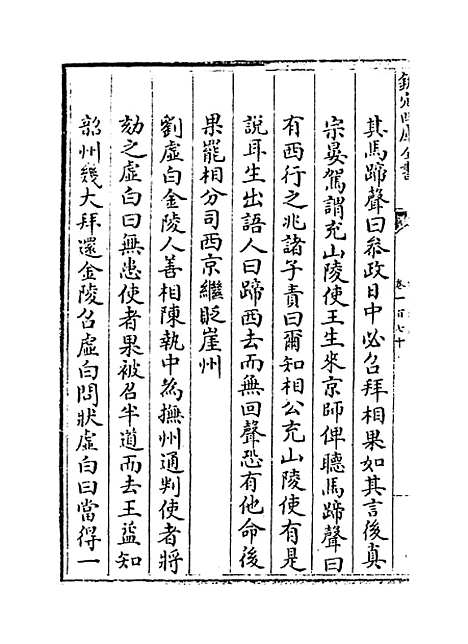 欽定四庫全書
卷一百七十
其馬蹄聲曰叅政日中必召拜相果如其言後真
宗晏駕謂充山陵使王生來京師俾聽馬蹄聲曰
有西行之兆諸子責曰爾知相公充山陵使有是
說耳生出語人曰蹄西去而無回聲恐有他命後
果罷相分司西京繼貶崖州
劉虛白金陵人善相陳執中為撫州通判使者將
劾之虛白曰無患使者果被召半道而去王益知
韶州幾大拜還金陵召虛白問狀虛白曰當得一